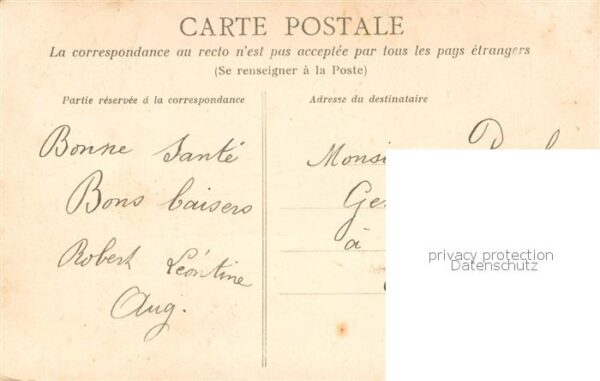 CARTE POSTALE
La correspondance au recto n'est pas acceptée par tous les pays étrangers
(Se renseigner à la Poste)
Partie réservée à la correspondance
Adresse du destinataire
Bonne Santé
Bons baisers
Robert Léontine
Aug.
Monsi
Ge
à
privacy protection
Datenschutz